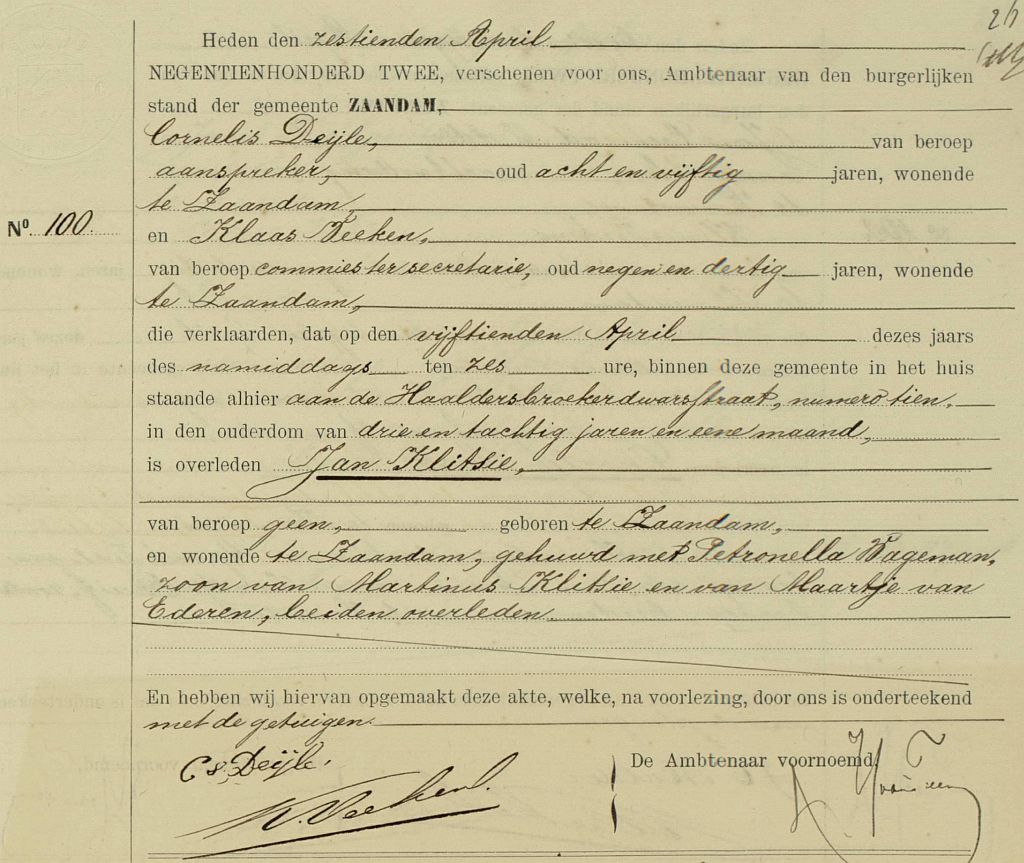 Heden den zestienden April
NEGENTIENHONDERD TWEE, verschenen voor ons, Ambtenaar van den burgerlijken
stand der gemeente ZAANDAM,
Cornelis Deijle, van beroep
aanspreker, oud acht en vijftig jaren, wonende
te Zaandam,
Nº. 100.
en Klaas Veeken,
van beroep commies ter secretarie, oud negen en dertig jaren, wonende
te Zaandam,
die verklaarden, dat op den vijftienden April dezes jaars
des namiddags ten zes ure, binnen deze gemeente in het huis
staande alhier aan de Haaldersbroekerdwarsstraat, numero tien,
in den ouderdom van drie en tachtig jaren en eene maand,
is overleden Jan Klitsie,
van beroep geen, geboren te Zaandam,
en wonende te Zaandam, gehuwd met Petronella Wageman,
zoon van Martinus Klitsie en van Maartje van
Ederen, beiden overleden.
En hebben wij hiervan opgemaakt deze akte, welke, na voorlezing, door ons is onderteekend
met de getuigen.
Cs. Deijle.
De Ambtenaar voornoemd,
K. Veeken.